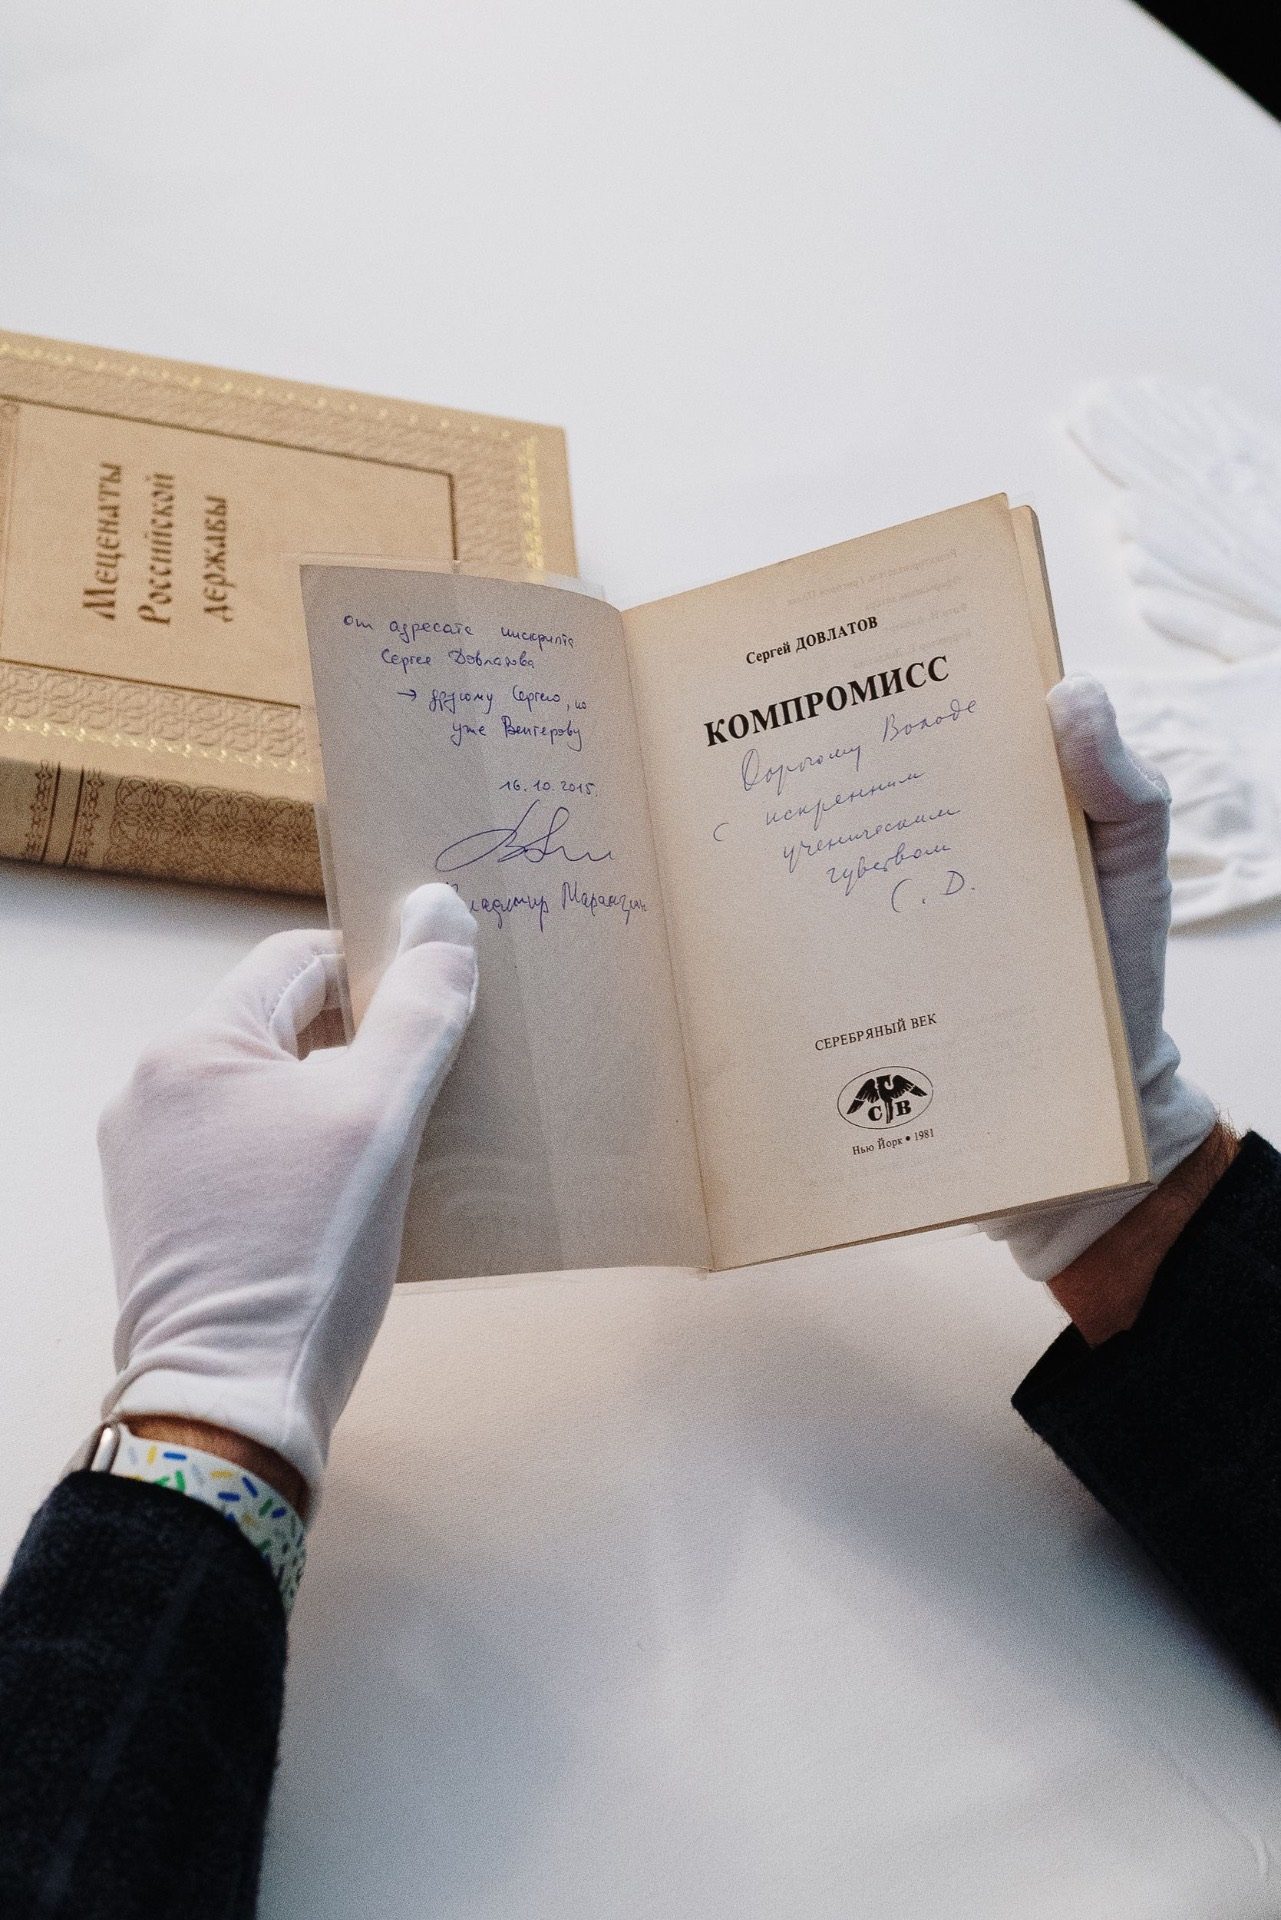 Меценаты
Российской
державы
от адресата инскрипта
Сергея Довлатова
→ другому Сергею, но
уже Венгерову
16.10.2015.
Владимир Марамзин
Сергей ДОВЛАТОВ
КОМПРОМИСС
Дорогому Володе
с искренним
ученическим
чувством
С. Д.
СЕРЕБРЯНЫЙ ВЕК
С В
Нью Йорк • 1981